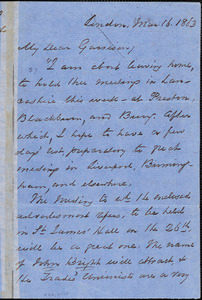 London, Mar. 16. 1863
My Dear Garrison,
I am about leaving home,
to hold three meetings in Lan-
cashire this week—at Preston,
Blackburn, and Bury. After
which, I hope to have a few
days' rest, preparatory to great
meetings in Liverpool, Birming-
ham, and elsewhere.
The meeting to wh. the enclosed
advertisement refers, to be held
in St. James' Hall on the 26th
will be a great one. The name
of John Bright will attract, &
the Trades' Unionists are a very